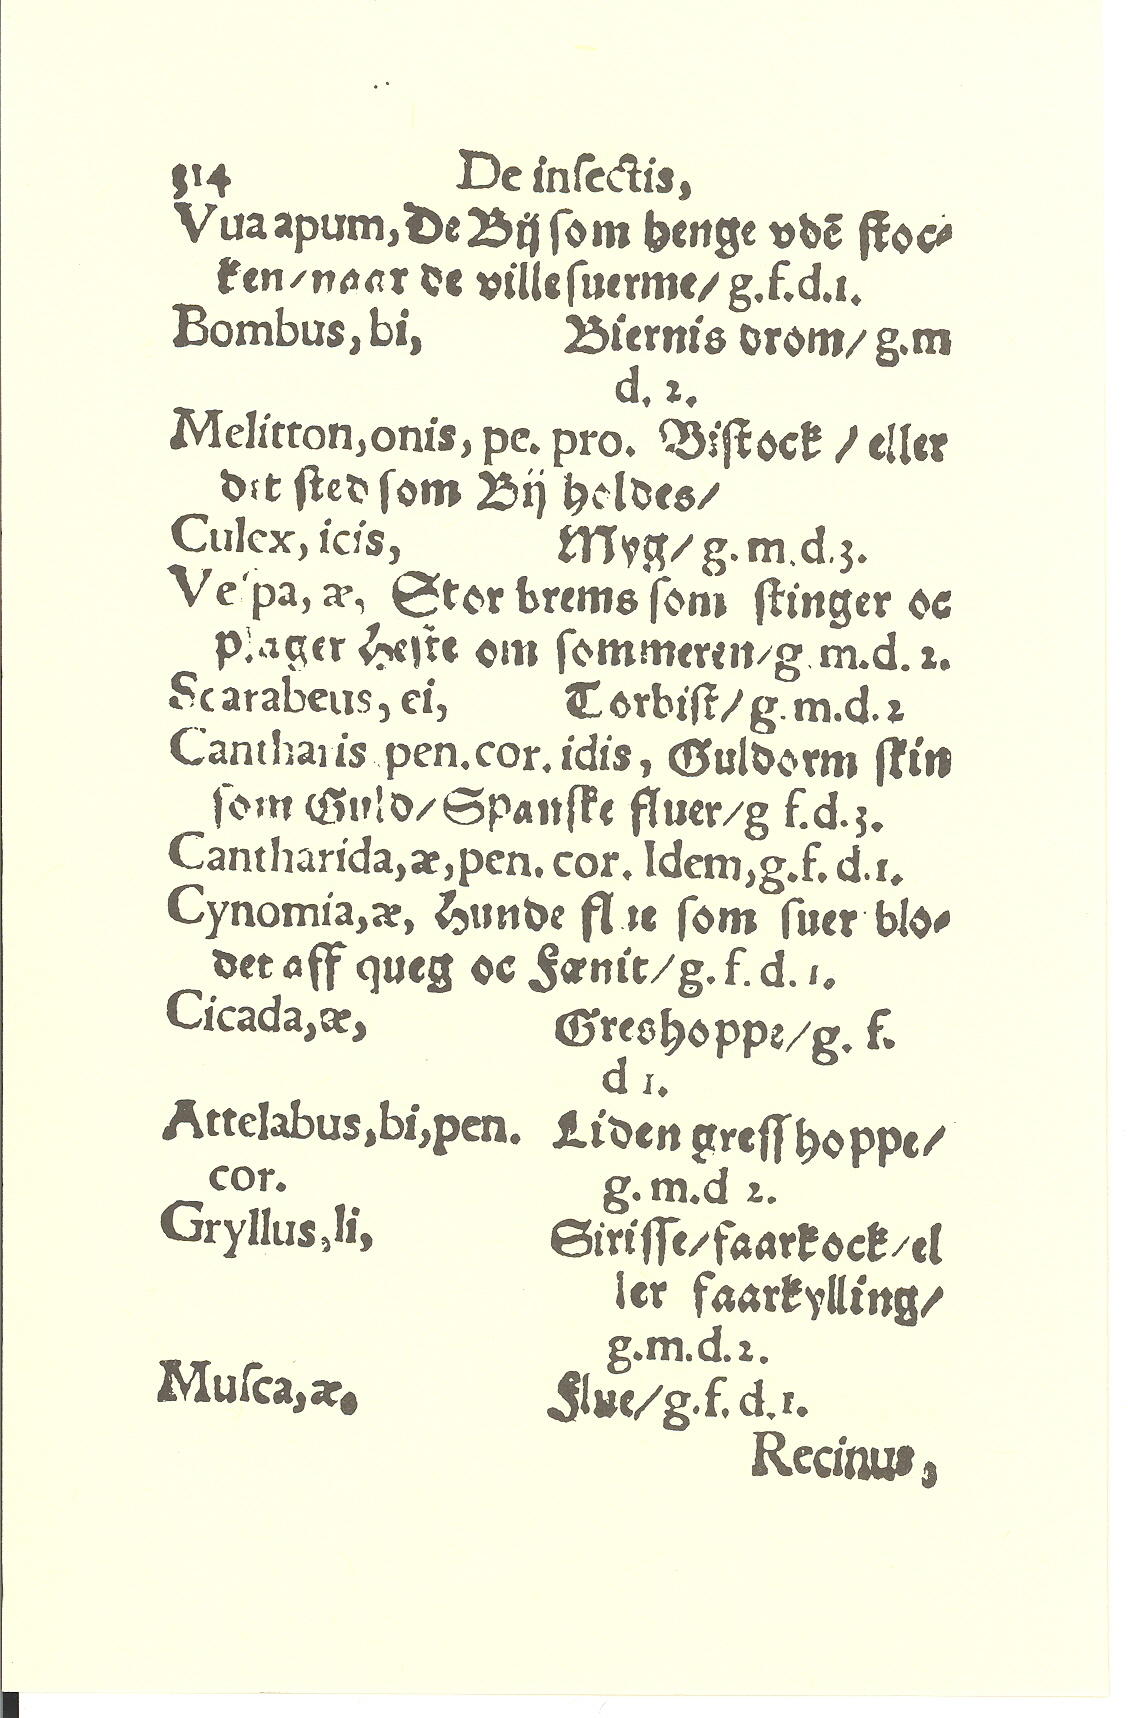 314 De insectis,
Vua apum, De Bij som henge vdē stoc-
ken/naar de ville suerme/ g.f.d.1.
Bombus, bi, Biernis drom/ g.m
d. 2.
Melitton, onis, pe. pro. Bistock / eller
dit sted som Bij holdes/
Culex, icis, Myg/ g. m. d. 3.
Vespa, æ, Stor brems som stinger oc
plager Heste om sommeren/g. m.d. 2.
Scarabeus, ei, Torbist/ g. m. d. 2
Cantharis pen. cor. idis, Guldorm skin
som Guld/Spanske fluer/g f. d. 3.
Cantharida, æ, pen. cor. Idem, g. f. d. 1.
Cynomia, æ, Hunde flue som suer blo-
det aff queg oc Fænit/ g. f. d. 1.
Cicada, æ, Greshoppe/ g. f.
d 1.
Attelabus, bi, pen. Liden gresshoppe/
cor. g. m.d 2.
Gryllus, li, Sirisse/faarkock/el
ler faarkylling/
g.m.d.2.
Musca, æ. Flue/ g. f. d. 1.
Recinus,